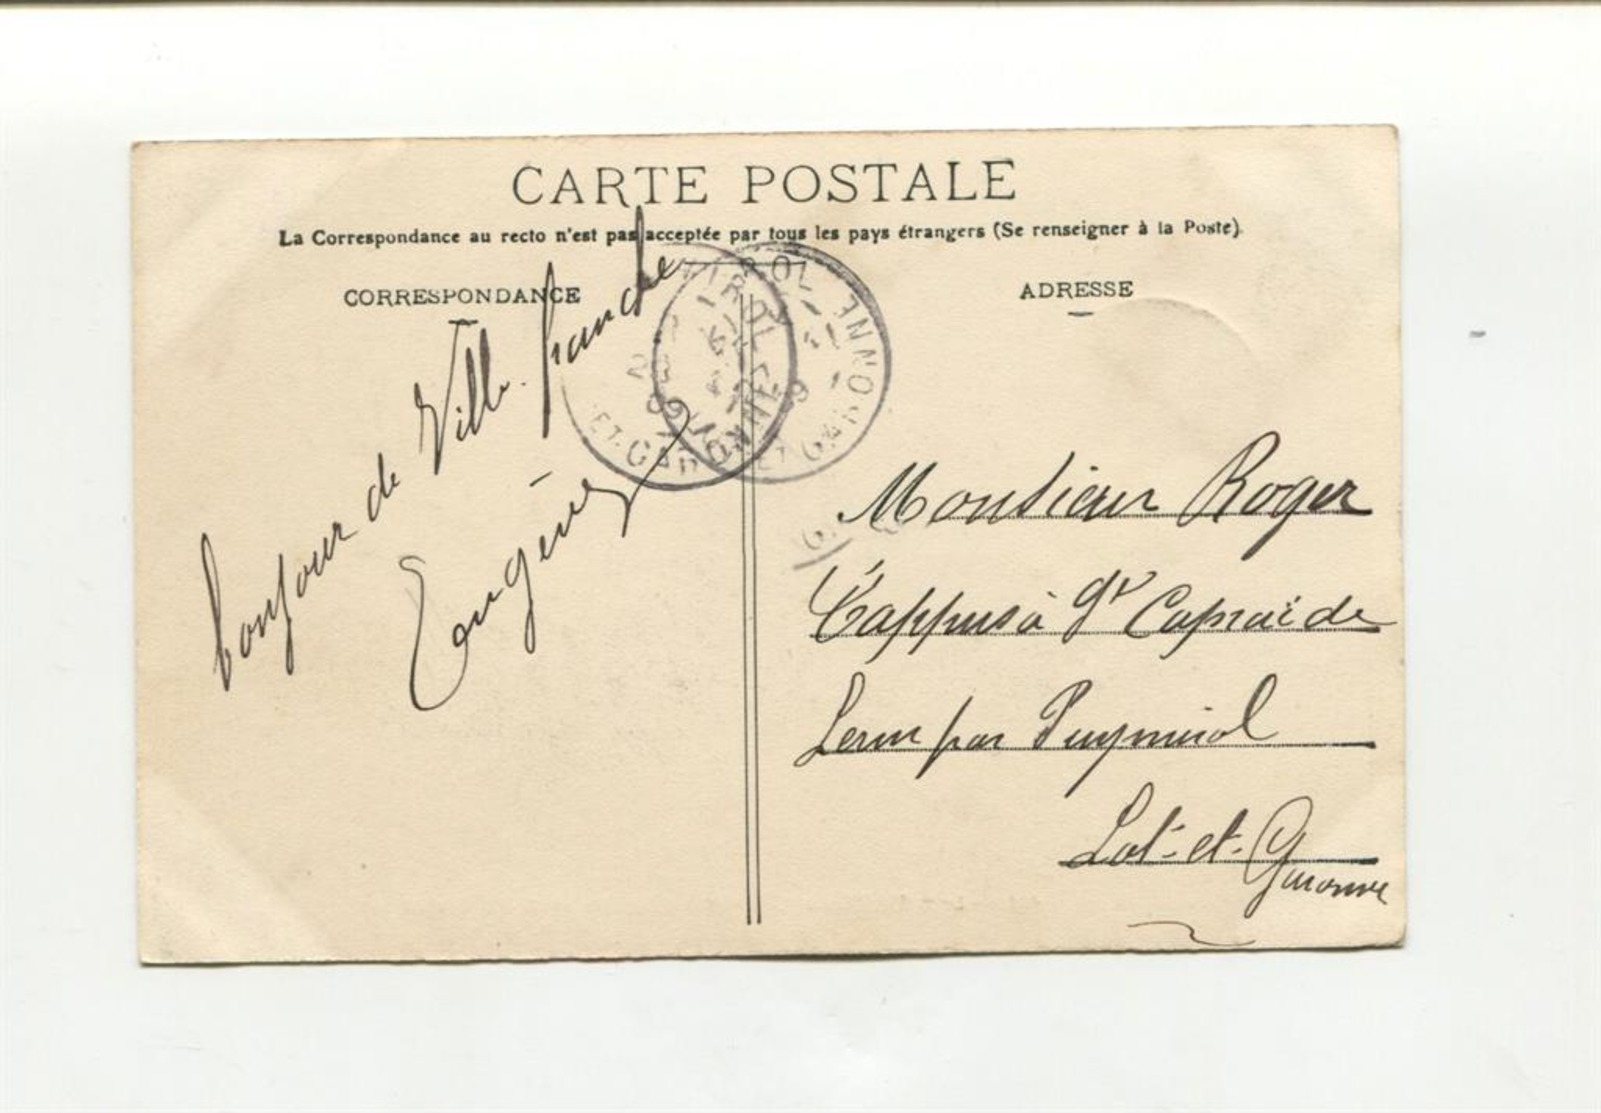 CARTE POSTALE
La Correspondance au recto n'est pas acceptée par tous les pays étrangers (Se renseigner à la Poste)
CORRESPONDANCE
ADRESSE
bonjour de Ville-franche
Monsieur Roger
à Sr Caprai de
Lerm par Puymirol
Lot-et-Garonne